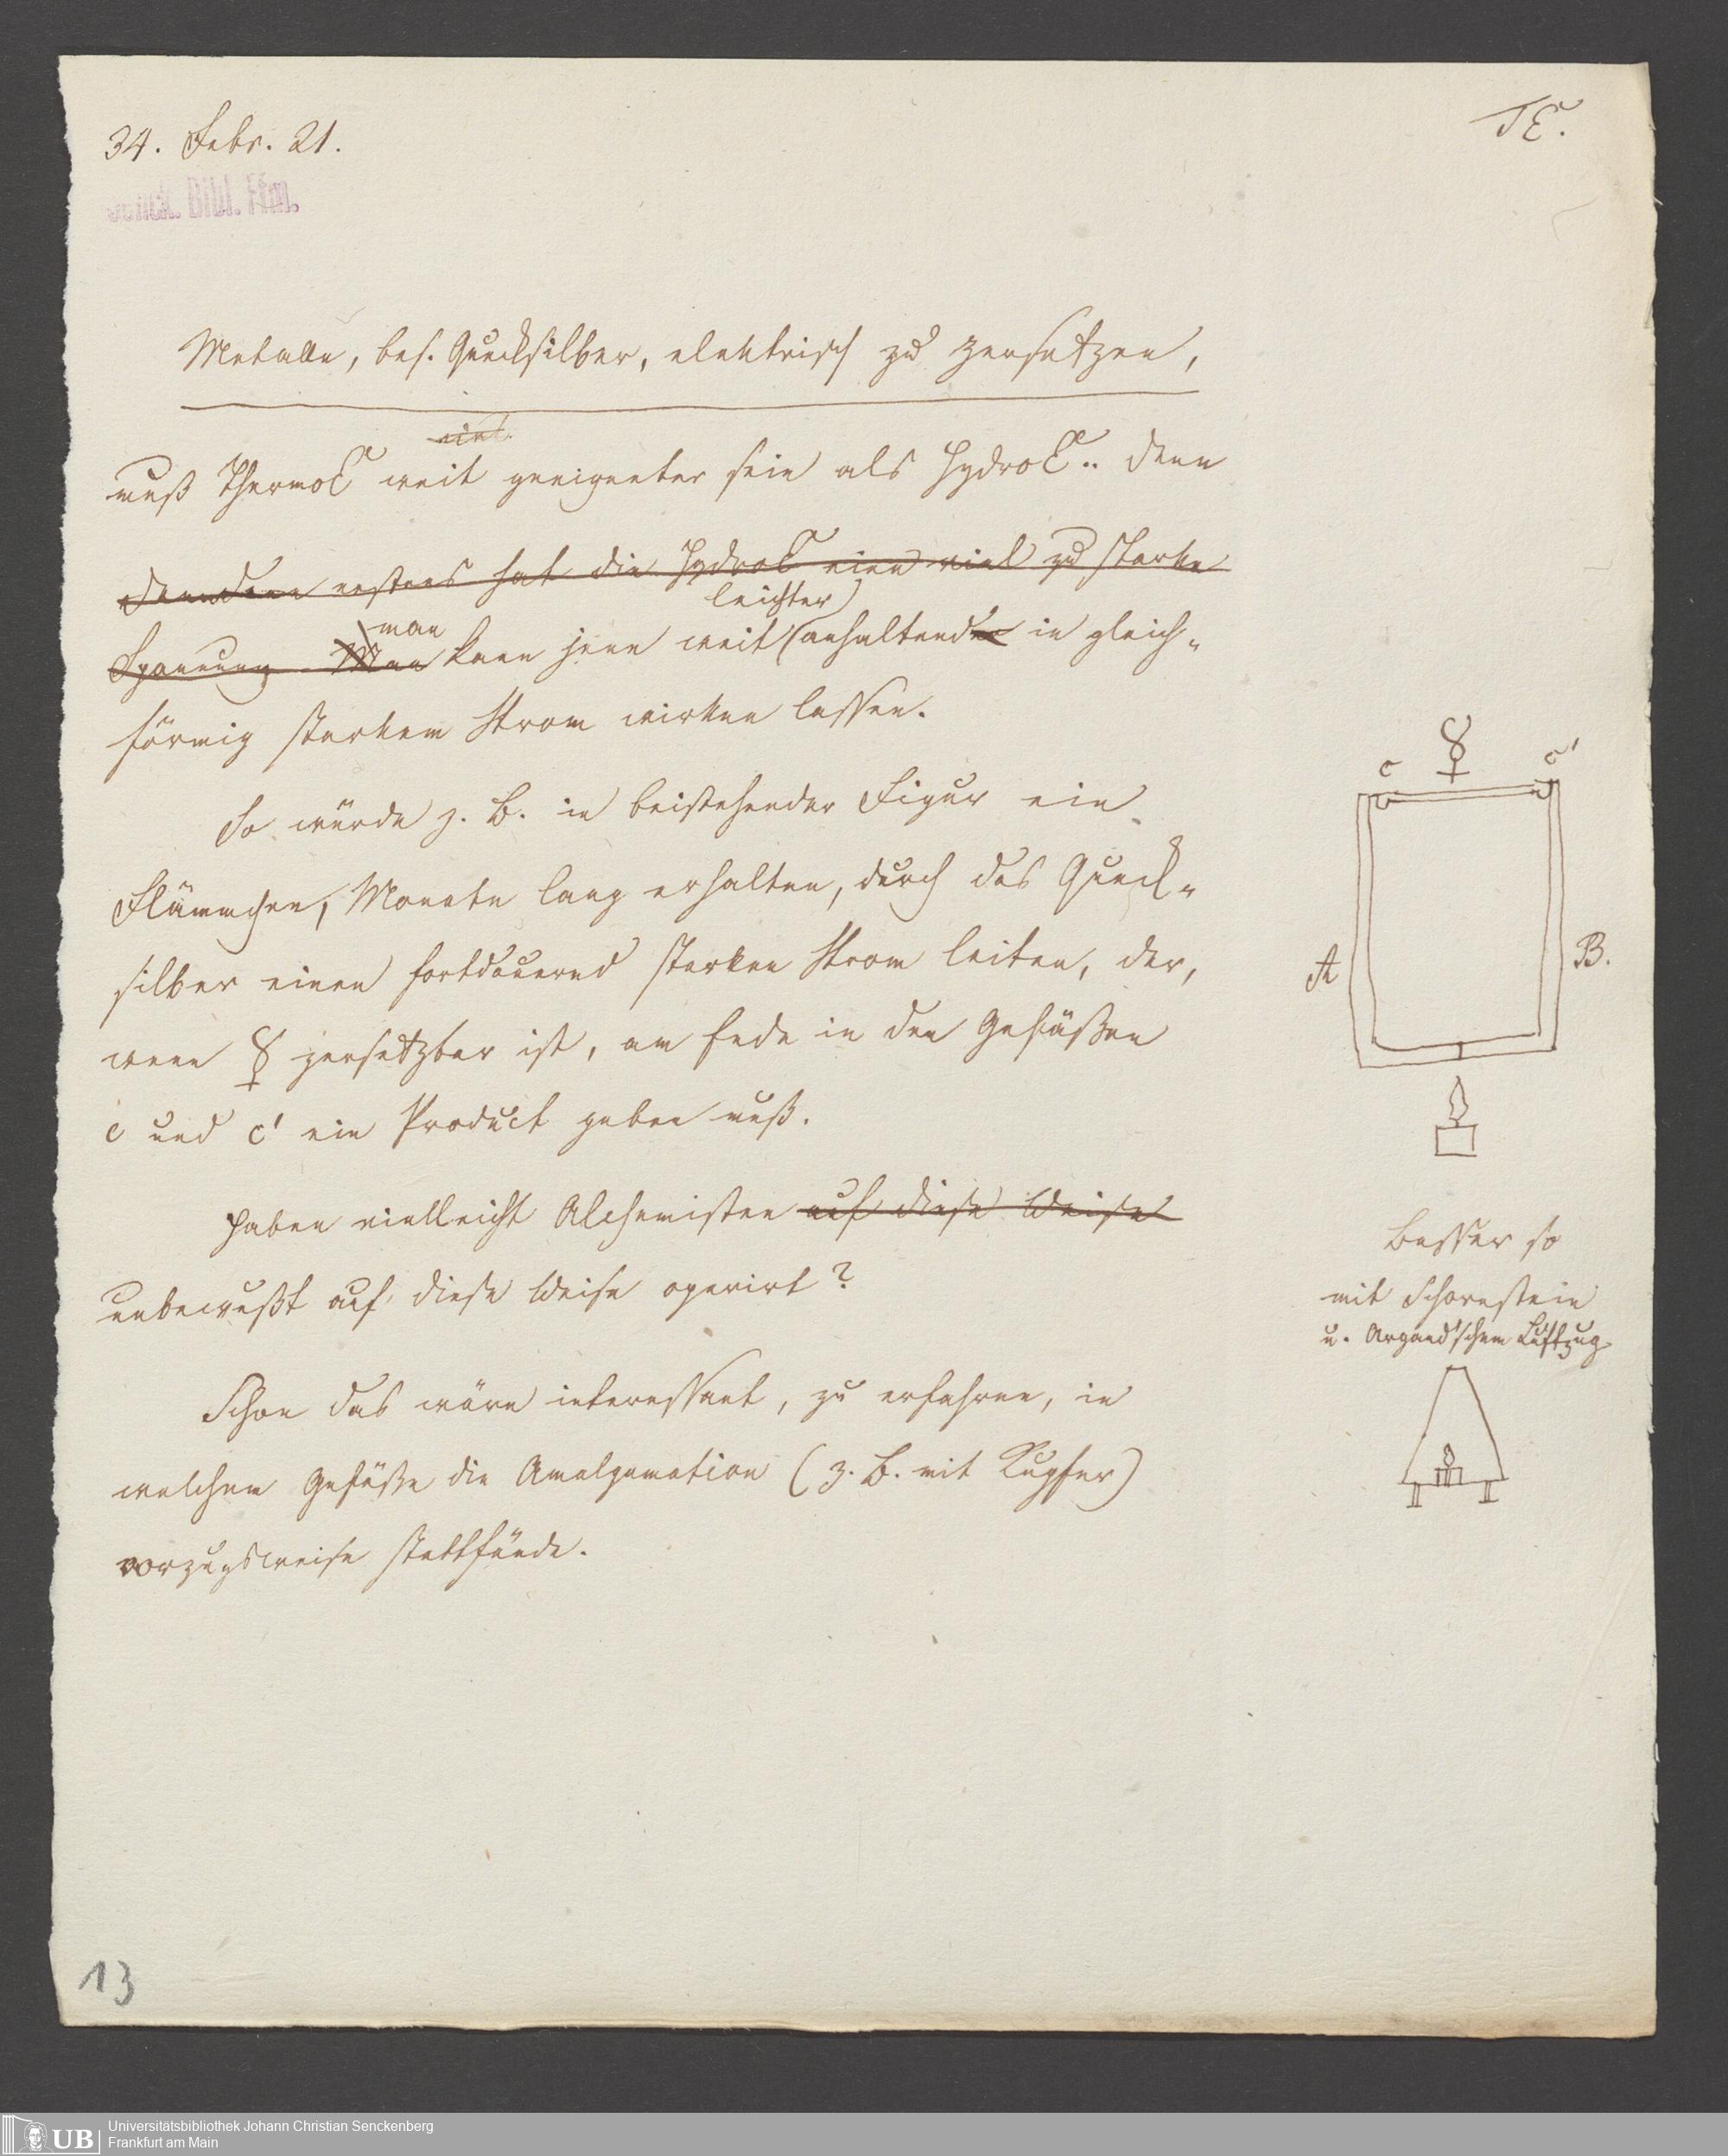 34. Febr. 21.
TE.
Senck. Bibl. Ffm.
Metalle, bes. Quecksilber, elektrisch zu zersetzen,
muß ThermoE weit geeigneter sein als HydroE.. denn
denn erstens hat die HydroE eine viel zu starke
leichter
man
Spannung Man kann jene weit (anhaltend in gleich-
förmig starkem Strom wirken lassen.
So würde z. B. in beistehender Figur ein
Flämmchen, Monate lang erhalten, durch das Queck-
silber einen fortdauernd starken Strom leiten, der,
wenn ☿ zersetzbar ist, am Ende in den Gefäßen
c und c' ein Product geben muß.
Haben vielleicht Alchemisten auf diese Weise
unbewußt auf diese Weise operirt?
Schon das wäre interessant, zu erfahren, in
welchem Gefäße die Amalgamation (z. B. mit Kupfer)
vorzugsweise stattfände.
c ☿ c'
A B.
Besser so
mit Schornstein
u. Argand'schem Luftzug
13
UB Universitätsbibliothek Johann Christian Senckenberg
Frankfurt am Main